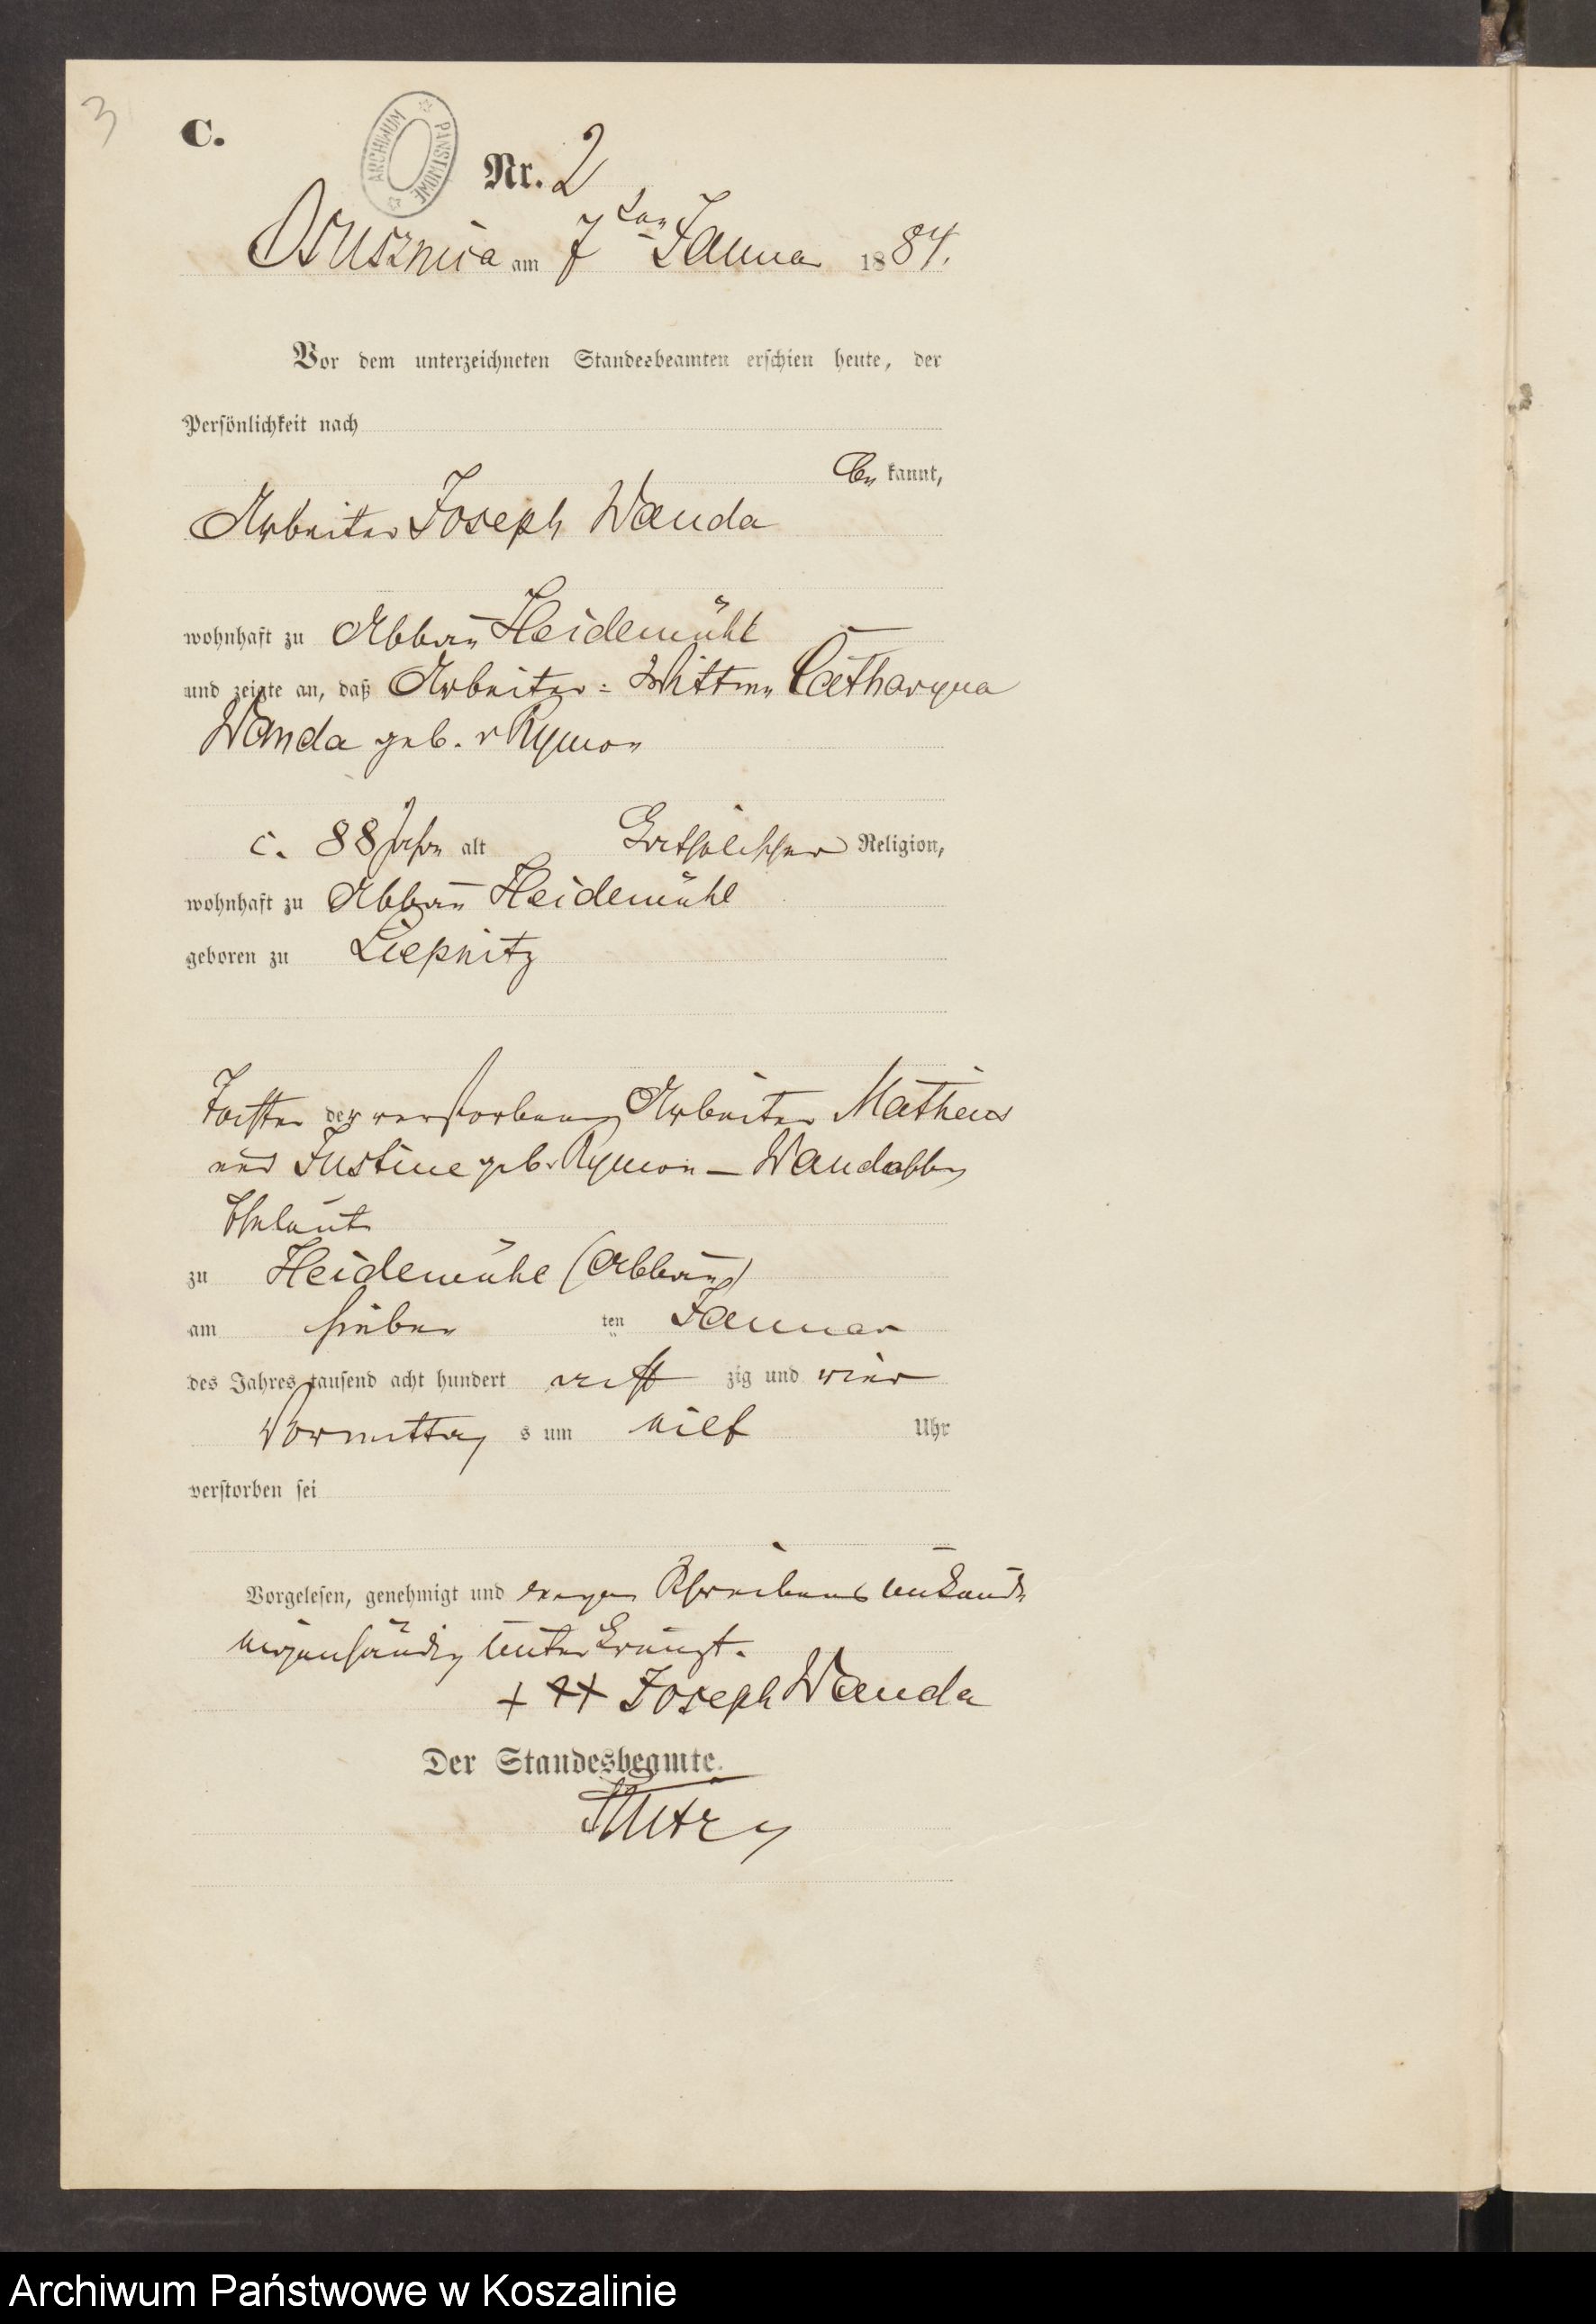 3
C.
ARCHIWUM PAŃSTWOWE
Nr. 2
Ossusznica am 7 ten Januar 1884.
Vor dem unterzeichneten Standesbeamten erschien heute, der
Persönlichkeit nach
be kannt,
Arbeiter Joseph Wanda
wohnhaft zu Abbau Heidemühl
und zeigte an, daß Arbeiter = Wittwe Catharyna
Wanda geb. v Rymon
c. 88 Jahre alt Katholischer Religion,
wohnhaft zu Abbau Heidemühl
geboren zu Liepnitz
Tochter der verstorbenen Arbeiter Matheus
und Justine geb. Rymon – Wanda
Eheleute
zu Heidemühl (Abbau)
am sieben ten Januar
des Jahres tausend acht hundert acht zig und vier
Vormittag s um elf Uhr
verstorben sei
Vorgelesen, genehmigt und wegen Schreibens unkunde
eigenhändig unterkreuzt.
+ + + Joseph Wanda
Der Standesbeamte.
Archiwum Państwowe w Koszalinie